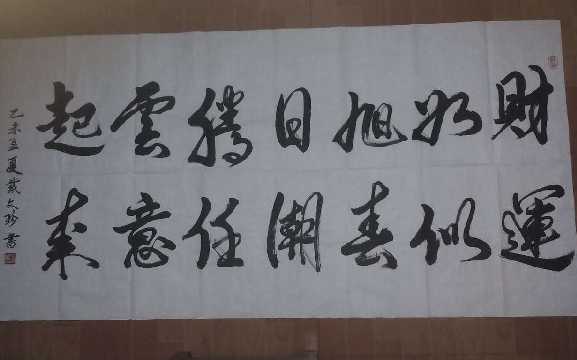 財如旭日騰雲起
運似春潮任意來
乙未夏戴珍書